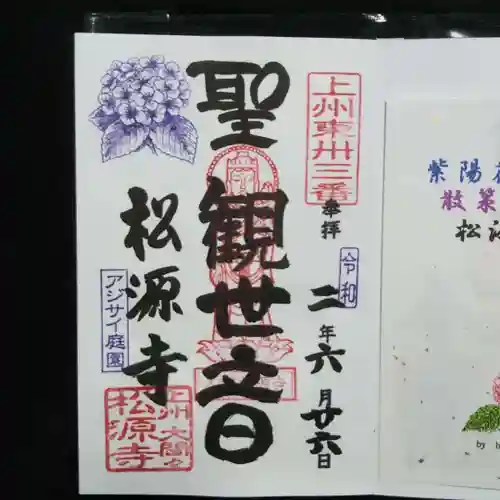 上州東卅三番
奉拝
令和
二年六月廿六日
聖観世音
松源寺
アジサイ庭園
上州大間々
松源寺
紫陽
散策
松源
by